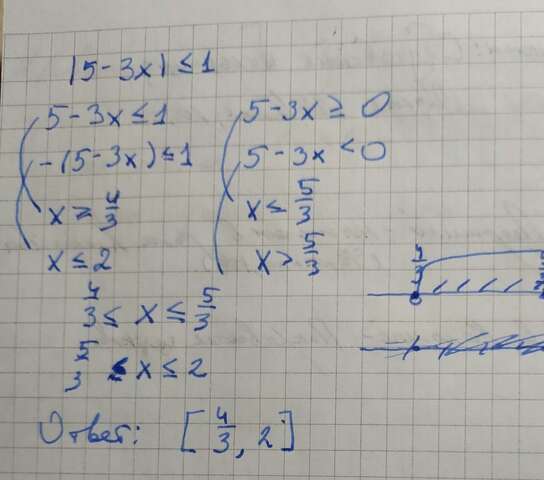 |5-3x|≤1
5-3x≤1
-(5-3x)≤1
x≥4/3
x≤2
5-3x≥0
5-3x<0
x≤5/3
x>5/3
4/3≤x≤5/3
5/3<x≤2
Ответ: [4/3, 2]
4/3